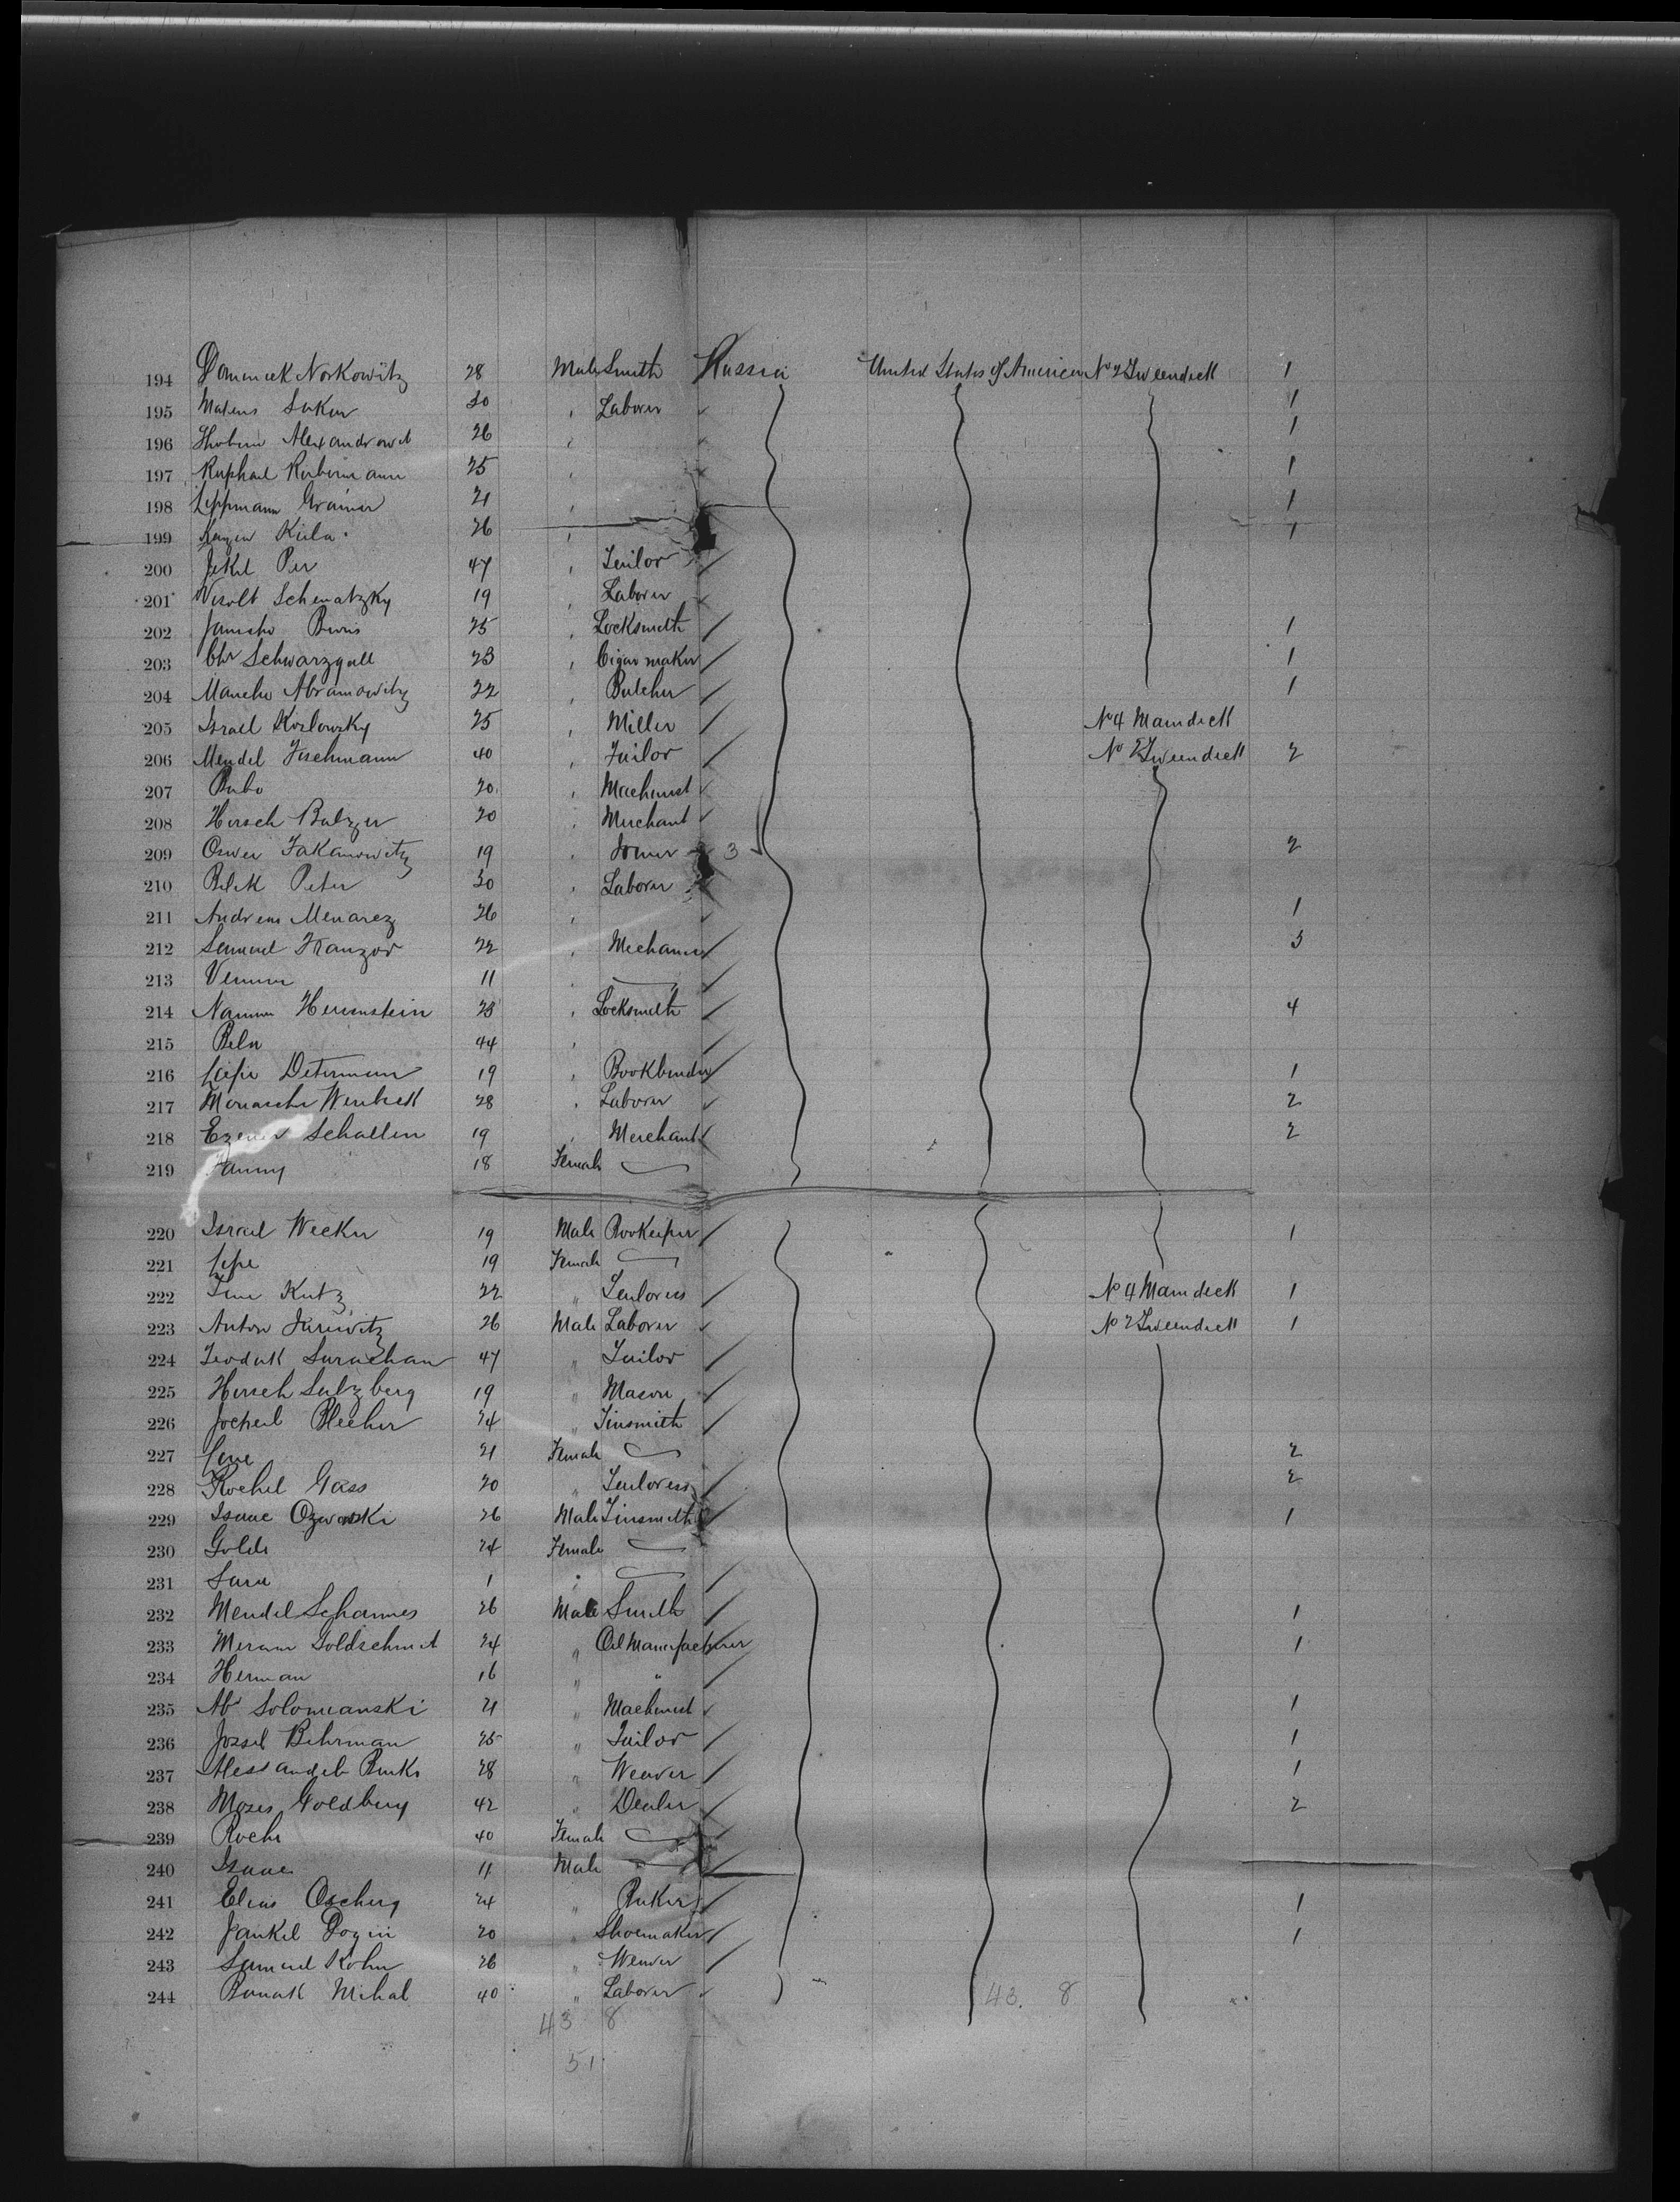 194 Domenick Norkowitz 28 Male Smith Russia United States of America No 2 Tweendeck 1
195 Matens Sukur 30 " Laborer 1
196 Alexandrowit 26 " 1
197 Raphael 25 " 1
198 Leppmann Grainer 21 " 1
199 Kula 26 " 1
200 Jekel Per 47 " Tailor
201 Wisolt Schematzky 19 " Laborer
202 Janischo Bwris 25 " Locksmith 1
203 Chr Schwarzgall 23 " Cigar maker 1
204 Manche Abramowitz 22 " Butcher 1
205 Israel Kozlowzky 25 " Miller No 4 Maindeck
206 Mendel Fischmann 40 " Tailor No 2 Tweendeck 2
207 Bubo 20 " Machinist
208 Hirsch Balzger 20 " Merchant
209 Oswei Jakanowitz 19 " Joiner 3 2
210 Belek Peter 30 " Laborer
211 Andreas Menarez 26 " 1
212 Samuel Franzor 22 " Mechanic 3
213 11 "
214 Naumm Herrnstein 23 " Locksmith 4
215 Bela 44 "
216 Determann 19 " Bookbinder 1
217 Monasche Weinbeck 28 " Laborer 2
218 Schallen 19 " Merchant 2
219 Fanny 18 Female
220 Israel Wecker 19 Male Bookeeper 1
221 19 Female
222 Kutz 22 " Tailoress No 4 Maindeck 1
223 Anton Jurewitz 26 Male Laborer No 2 Tweendeck 1
224 Surachan 47 " Tailor
225 Hirsch Sulzberg 19 " Mason
226 Blecher 24 " Tinsmith
227 21 Female 2
228 Rochel Gass 20 " Tailoress 2
229 Isaac Ozworski 26 Male Tinsmith 1
230 Golde 24 Female
231 Sara 1 "
232 Mendel Schannes 26 Male Smith 1
233 Goldschmit 24 " Oil Manufacturer 1
234 Herman 16 " "
235 Ab Solomianski 21 " Machinist 1
236 Jossel Behrman 25 " Tailor 1
237 28 " Weaver 1
238 Mozes Goldberg 42 " Dealer 2
239 Roche 40 Female
240 Isaac 11 Male
241 Elias Oscherg 24 " Baker 1
242 Jankel Dogin 20 " Shoemaker 1
243 Samuel Kohn 26 " Weaver
244 Banak Mihal 40 " Laborer 43. 8
43 8
51